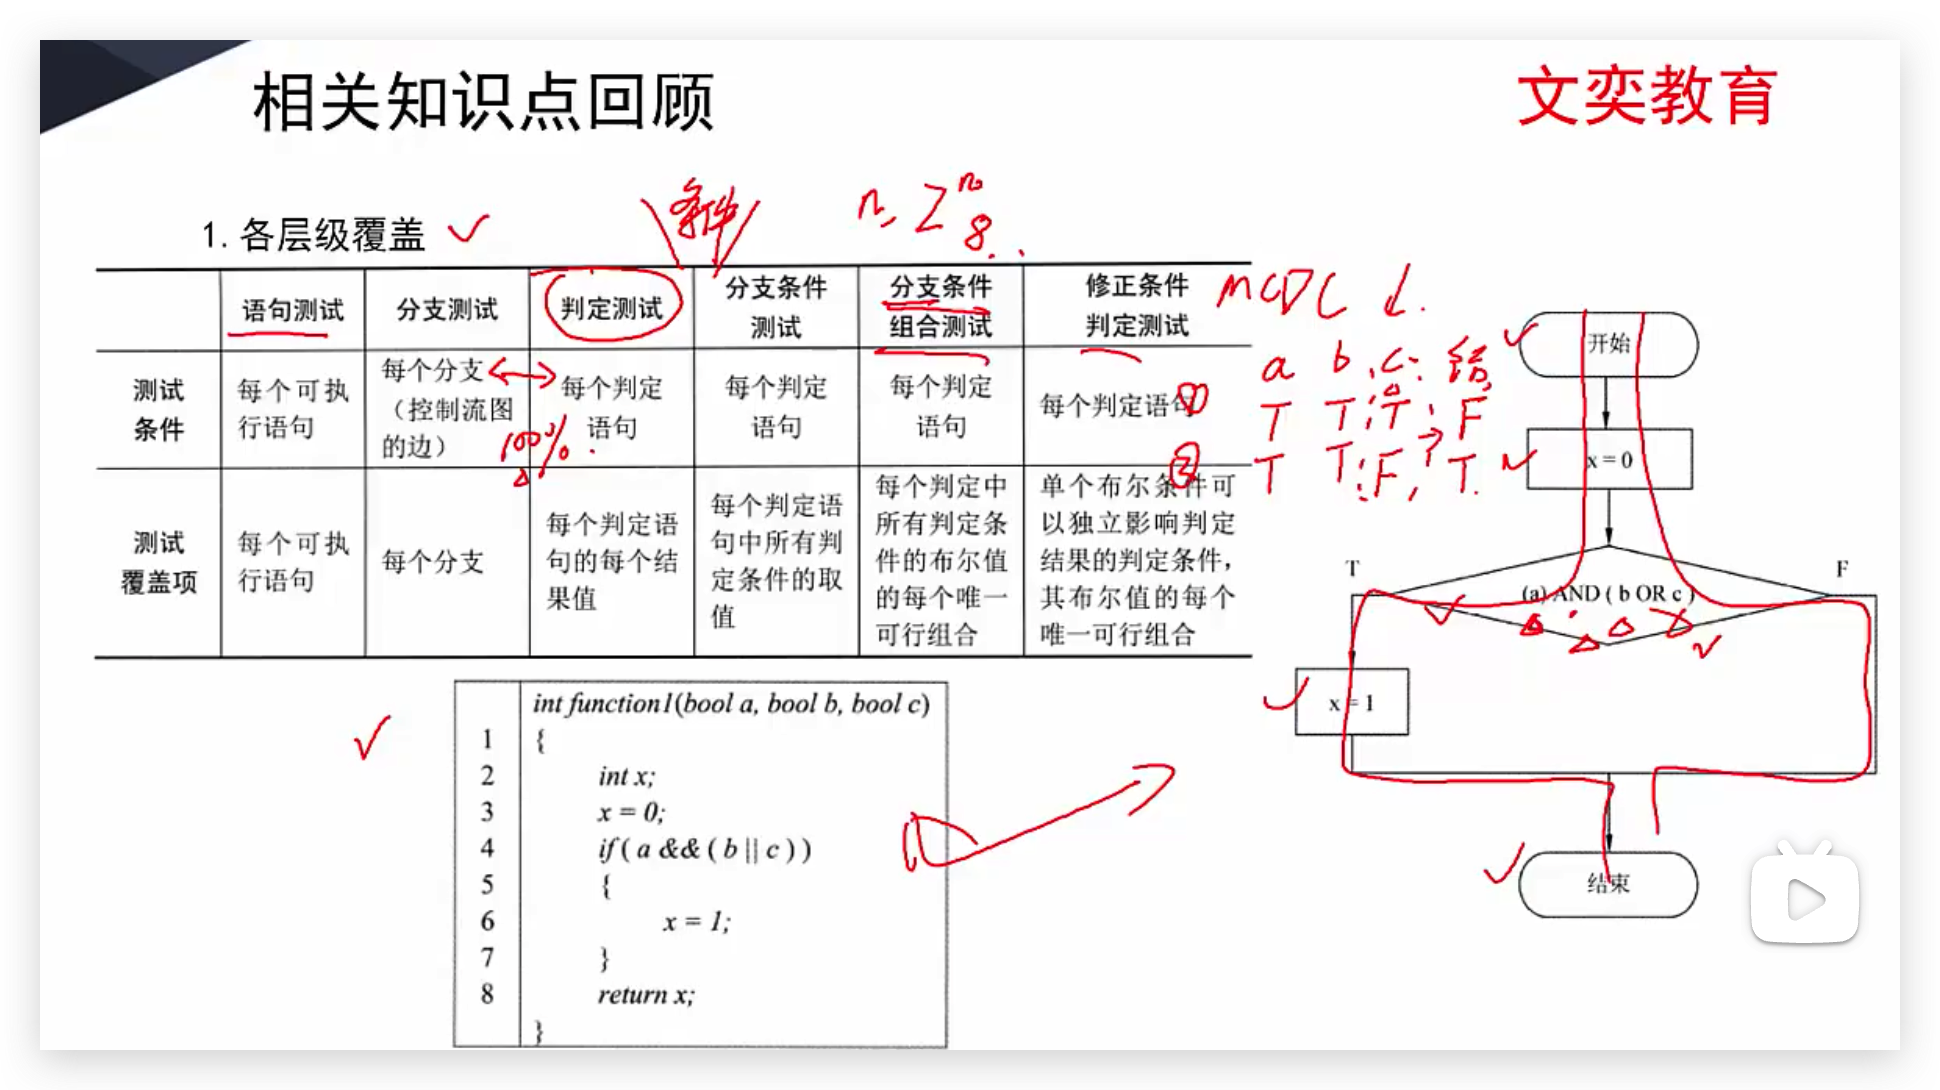 相关知识点回顾
文奕教育
1. 各层级覆盖
条件
n, 2^n
8
语句测试
分支测试
判定测试
分支条件
测试
分支条件
组合测试
修正条件
判定测试
MCDC
测试
条件
每个可执
行语句
每个分支
（控制流图
的边）
100%
每个判定
语句
每个判定
语句
每个判定
语句
每个判定语句
测试
覆盖项
每个可执
行语句
每个分支
每个判定语
句的每个结
果值
每个判定语
句中所有判
定条件的取
值
每个判定中
所有判定条
件的布尔值
的每个唯一
可行组合
单个布尔条件可
以独立影响判定
结果的判定条件，
其布尔值的每个
唯一可行组合
a b c 结
① T T T F
② T T F T
int function1(bool a, bool b, bool c)
1 {
2 int x;
3 x = 0;
4 if( a && ( b || c ) )
5 {
6 x = 1;
7 }
8 return x;
}
开始
x = 0
T
F
(a) AND ( b OR c )
x = 1
结束